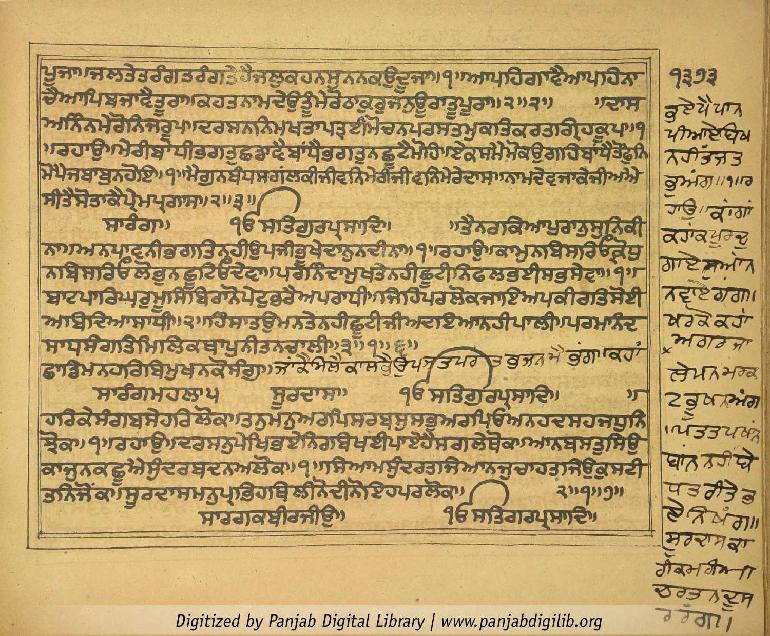 ਪੂਜਾ॥ਜਲਤੇਤਰੰਗਤਰੰਗਤੇਹੈਜਲੁਕਹਨਸੁਨਨਕਉਦੂਜਾ॥੧॥ਆਪਹਿਗਾਵੈਆਪਹਿਨਾ
ਚੈਆਪਿਬਜਾਵੈਤੂਰਾ॥ਕਹਤਨਾਮਦੇਉਤੂੰਮੇਰੋਠਾਕੁਰੁਜਨੁਊਰਾਤੂਪੂਰਾ॥੨॥੨॥ ॥ਦਾਸ
ਅਨਿੰਨਮੇਰੋਨਿਜਰੂਪ॥ਦਰਸਨਨਿਮਖਤਾਪਤ੍ਰਈਮੋਚਨਪਰਸਤਮੁਕਤਿਕਰਤਗ੍ਰਿਹਕੂਪ॥੧
॥ਰਹਾਉ॥ਮੇਰੀਬਾਂਧੀਭਗਤੁਛਡਾਵੈਬਾਂਧੈਭਗਤੁਨਛੂਟੈਮੋਹਿ॥ਏਕਸਮੈਮੋਕਉਗਹਿਬਾਂਧੈਤਉਫੁਨਿ
ਮੋਪੈਜਬਾਬੁਨਹੋਇ॥੧॥ਮੈਗੁਨਬੰਧਸਗਲਕੀਜੀਵਨਿਮੇਰੀਜੀਵਨਿਮੇਰੇਦਾਸ॥ਨਾਮਦੇਵਜਾਕੇਜੀਅਐ
ਸੀਤੈਸੋਤਾਕੈਪ੍ਰੇਮਪ੍ਰਗਾਸ॥੨॥੩॥
ਸਾਰੰਗ॥ ੴਸਤਿਗੁਰਪ੍ਰਸਾਦਿ॥ ॥ਤੈਨਰਕਿਆਪੁਰਾਨੁਸੁਨਿਕੀ
ਨਾ॥ਅਨਪਾਵਨੀਭਗਤਿਨਹੀਉਪਜੀਭੂਖੇਦਾਨੁਨਦੀਨਾ॥੧॥ਰਹਾਉ॥ਕਾਮੁਨਬਿਸਰਿਓਕ੍ਰੋਧੁ
ਨਬਿਸਰਿਓਲੋਭੁਨਛੂਟਿਓਦੇਵਾ॥ਪਰਨਿੰਦਾਮੁਖਤੇਨਹੀਛੂਟੀਨਿਫਲਭਈਸਭਸੇਵਾ॥੧॥
ਬਾਟਪਾਰਿਘਰੁਮੂਸਿਬਿਰਾਨੋਪੇਟੁਭਰੈਅਪਰਾਧੀ॥ਜਿਹਿਪਰਲੋਕਜਾਇਅਪਕੀਰਤਿਸੋਈ
ਅਬਿਦਿਆਸਾਧੀ॥੨॥ਹਿੰਸਾਤਉਮਨਤੇਨਹੀਛੂਟੀਜੀਅਦਇਆਨਹੀਪਾਲੀ॥ਪਰਮਾਨੰਦ
ਸਾਧਸੰਗਤਿਮਿਲਿਕਥਾਪੁਨੀਤਨਚਾਲੀ॥੩॥੧॥੬॥
ਛਾਡਿਮਨਹਰਿਬਿਮੁਖਨਕੋਸੰਗੁ॥ਜਾਂਕੈਮਿਲੈ
ਸਾਰੰਗਮਹਲਾ੫ ਸੂਰਦਾਸ॥ ੴਸਤਿਗੁਰਪ੍ਰਸਾਦਿ॥ ॥
ਹਰਿਕੇਸੰਗਬਸੇਹਰਿਲੋਕ॥ਤਨੁਮਨੁਅਰਪਿਸਰਬਸੁਸਭੁਅਰਪਿਓਅਨਦਸਹਜਧੁਨਿ
ਝੋਕ॥੧॥ਰਹਾਉ॥ਦਰਸਨੁਪੇਖਿਭਏਨਿਰਬਿਖਈਪਾਏਹੈਸਗਲੇਥੋਕ॥ਆਨਬਸਤੁਸਿਉ
ਕਾਜੁਨਕਛੂਐਸੁੰਦਰਬਦਨਅਲੋਕ॥੧॥ਸਿਆਮਸੁੰਦਰਤਜਿਆਨਜੁਚਾਹਤਜਿਉਕੁਸਟੀ
ਤਨਿਜੋਕ॥ਸੂਰਦਾਸਮਨੁਪ੍ਰਭਿਹਥਿਲੀਨੋਦੀਨੋਇਹਪਰਲੋਕ॥ ੨॥੧॥੭॥
ਸਾਰਗਕਬੀਰਜੀਉ॥ ੴਸਤਿਗੁਰਪ੍ਰਸਾਦਿ॥
੧੩੭੩
ਪੀਆਏਬਿਖ
ਨਹੀਤਜਤ
ਭੁਅੰਗ॥੧॥ਰ
ਹਾਉ॥ਕਾਗਾ
ਕਹਾਂਕਪੂਰਚੁ
ਗਾਏਸੁਆਨ
ਨਵਾਏਗੰਗ॥
ਖਰਕੋਕਹਾਂ
ਅਗਰਜਾ
ਲੇਪਨਮਰਕ
ਟਭੂਖਨਅੰਗ
॥ਪਤਤਪਖਨ
ਬਾਂਨਨਹੀਬੇ
ਧਤਰੀਤੇਭ
ਏਨਿਖੰਗ॥
ਸੂਰਦਾਸਕਾ
Digitized by Panjab Digital Library | www.panjabdigilib.org